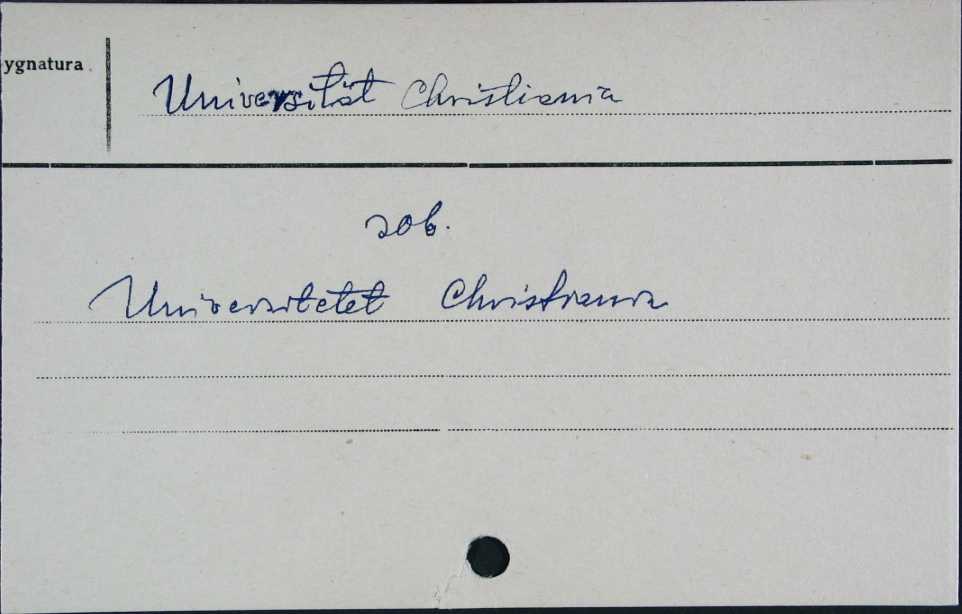 ygnatura
Universität Christiania
zob.
Universitetet Christiania